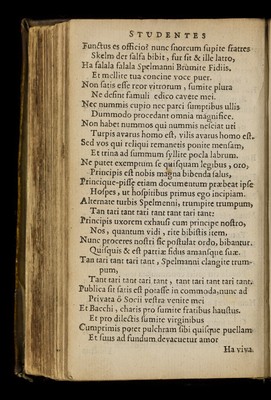 STUDENTES
Functus es officio? nunc snorcum supite fratres
Skelm der salsa bibit, fur sit & ille latro,
Ha salala salala Spelmanni Brümite Fidiis,
Et mellite tua concine voce puer.
Non satis esse reor vitrorum, sumite plura
Ne desint famuli edico cavete mei.
Nec nummis cupio nec parci sumptibus ullis
Dummodo procedant omnia magnifice.
Non habet nummos qui nummis nesciat uti
Turpis avarus homo est, vilis avarus homo est.
Sed vos qui reliqui remanetis ponite mensam,
Et trina ad summum syllite pocla labrum.
Ne putet exemptum se quisquam legibus, oro,
Principis est nobis magna bibenda salus,
Principique-pisse etiam documentum præbeat ipse
Hospes, ut hospitibus primus ego incipiam.
Alternate turbis Spelmenni, trumpite trumpum,
Tan tari tant tari tant tant tari tant:
Principis uxorem exhausi cum principe nostro,
Nos, quantum vidi, rite bibistis item.
Nunc proceres nostri sic postular ordo, bibantur.
Quisquis & est partiæ fidus amansque suæ.
Tan tari tant tari tant, Spelmanni clangite trum-
pum,
Tant tari tant tari tant, tant tari tant tari tant.
Publica sit satis est potasse in commoda, nunc ad
Privata ô Sorii vestra venite mei
Et Bacchi, charis pro sumite fratibus haustus.
Et pro dilectis sumite virginibus
Cumprimis potet pulchram sibi quisque puellam
Et suus ad fundum devacuetur amor
Ha viva.